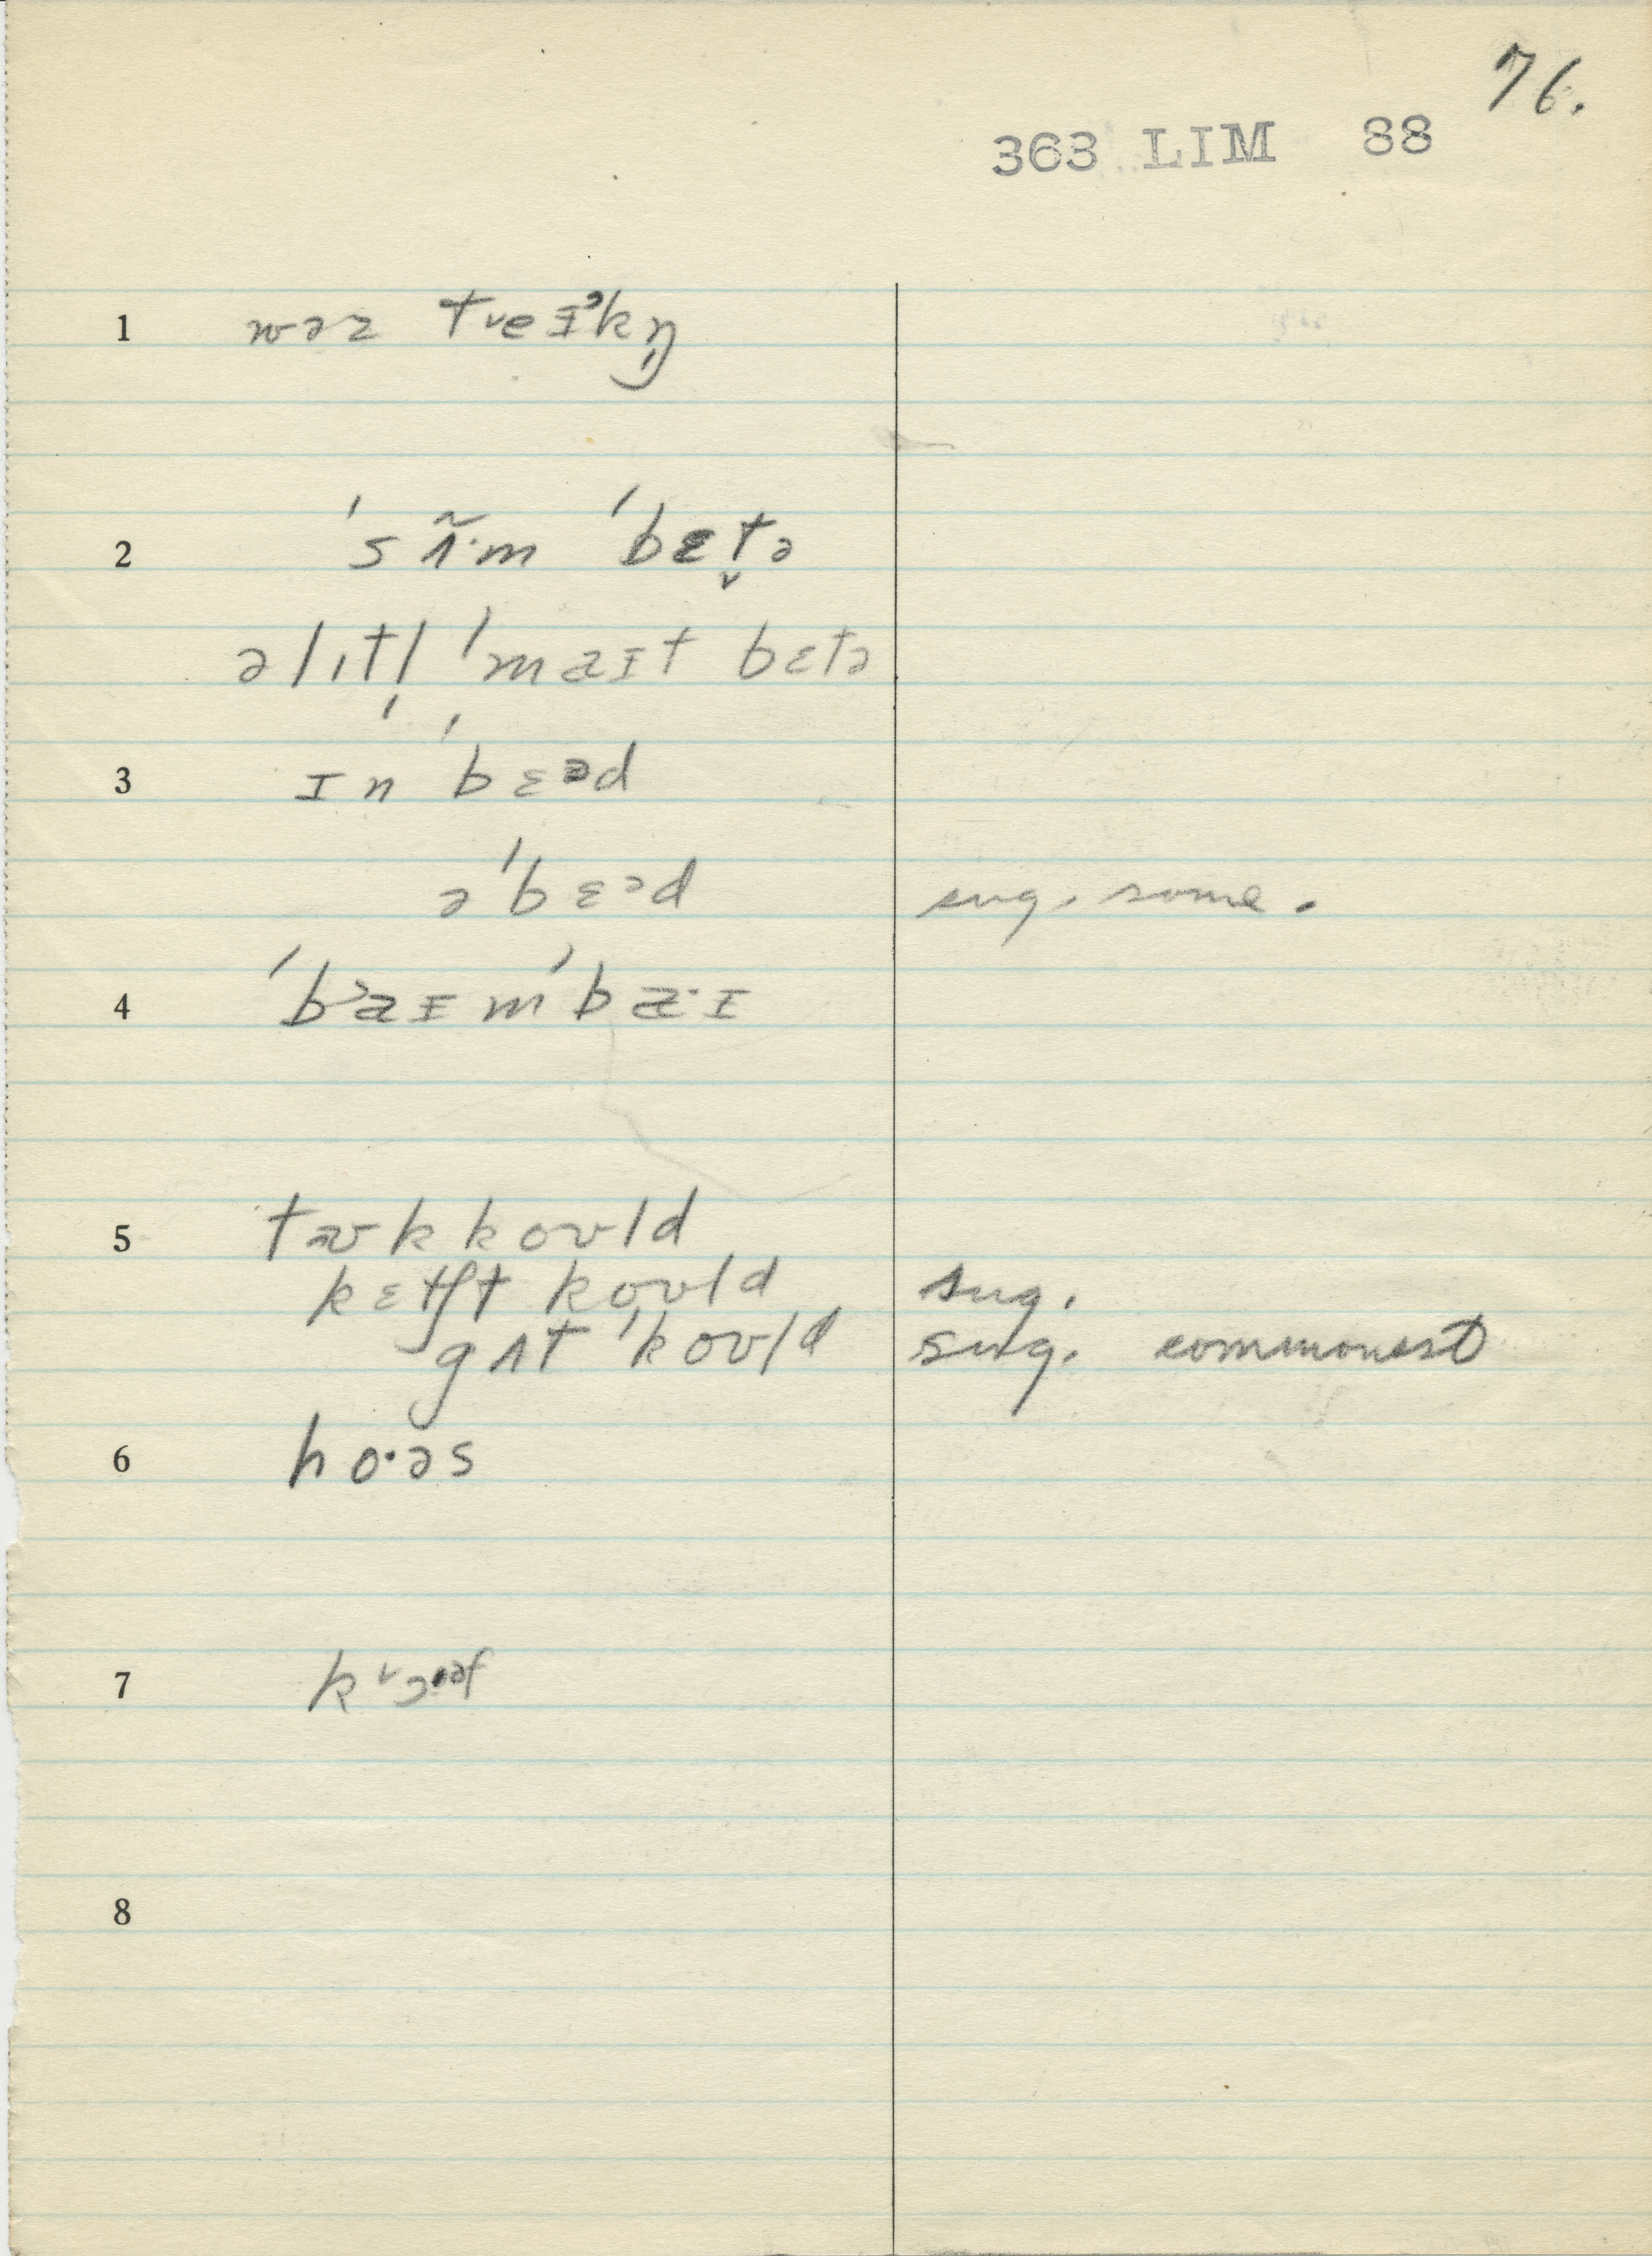 76.
363 LIM 88
1 wəz tᵛeɪᵊkŋ̩
2 ˈsʌ̃·m ˈbɛt̬ə
əlɪtl̩ ˈmaɪt bɛtə
3 ɪn ˈbɛəd
əˈbɛəd sug. some.
4 ˈbaɪmˈba·ɪ
5 tʊk koʊld
kɛtʃt koʊld sug.
gʌt ˈkoʊld sug. commonest
6 ho·əs
7
8